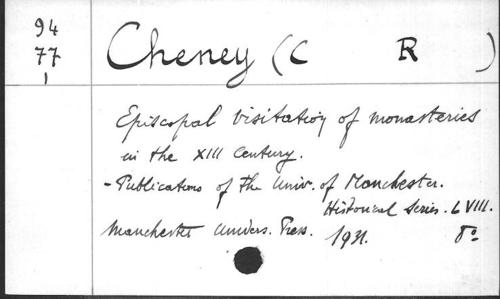 94
77
1
Cheney (C R )
Episcopal Visitation of monasteries
in the XIII Century.
- Publications of the Univ. of Manchester.
Historical Series. LVIII.
Manchester Univers. Press. 1931. 8º